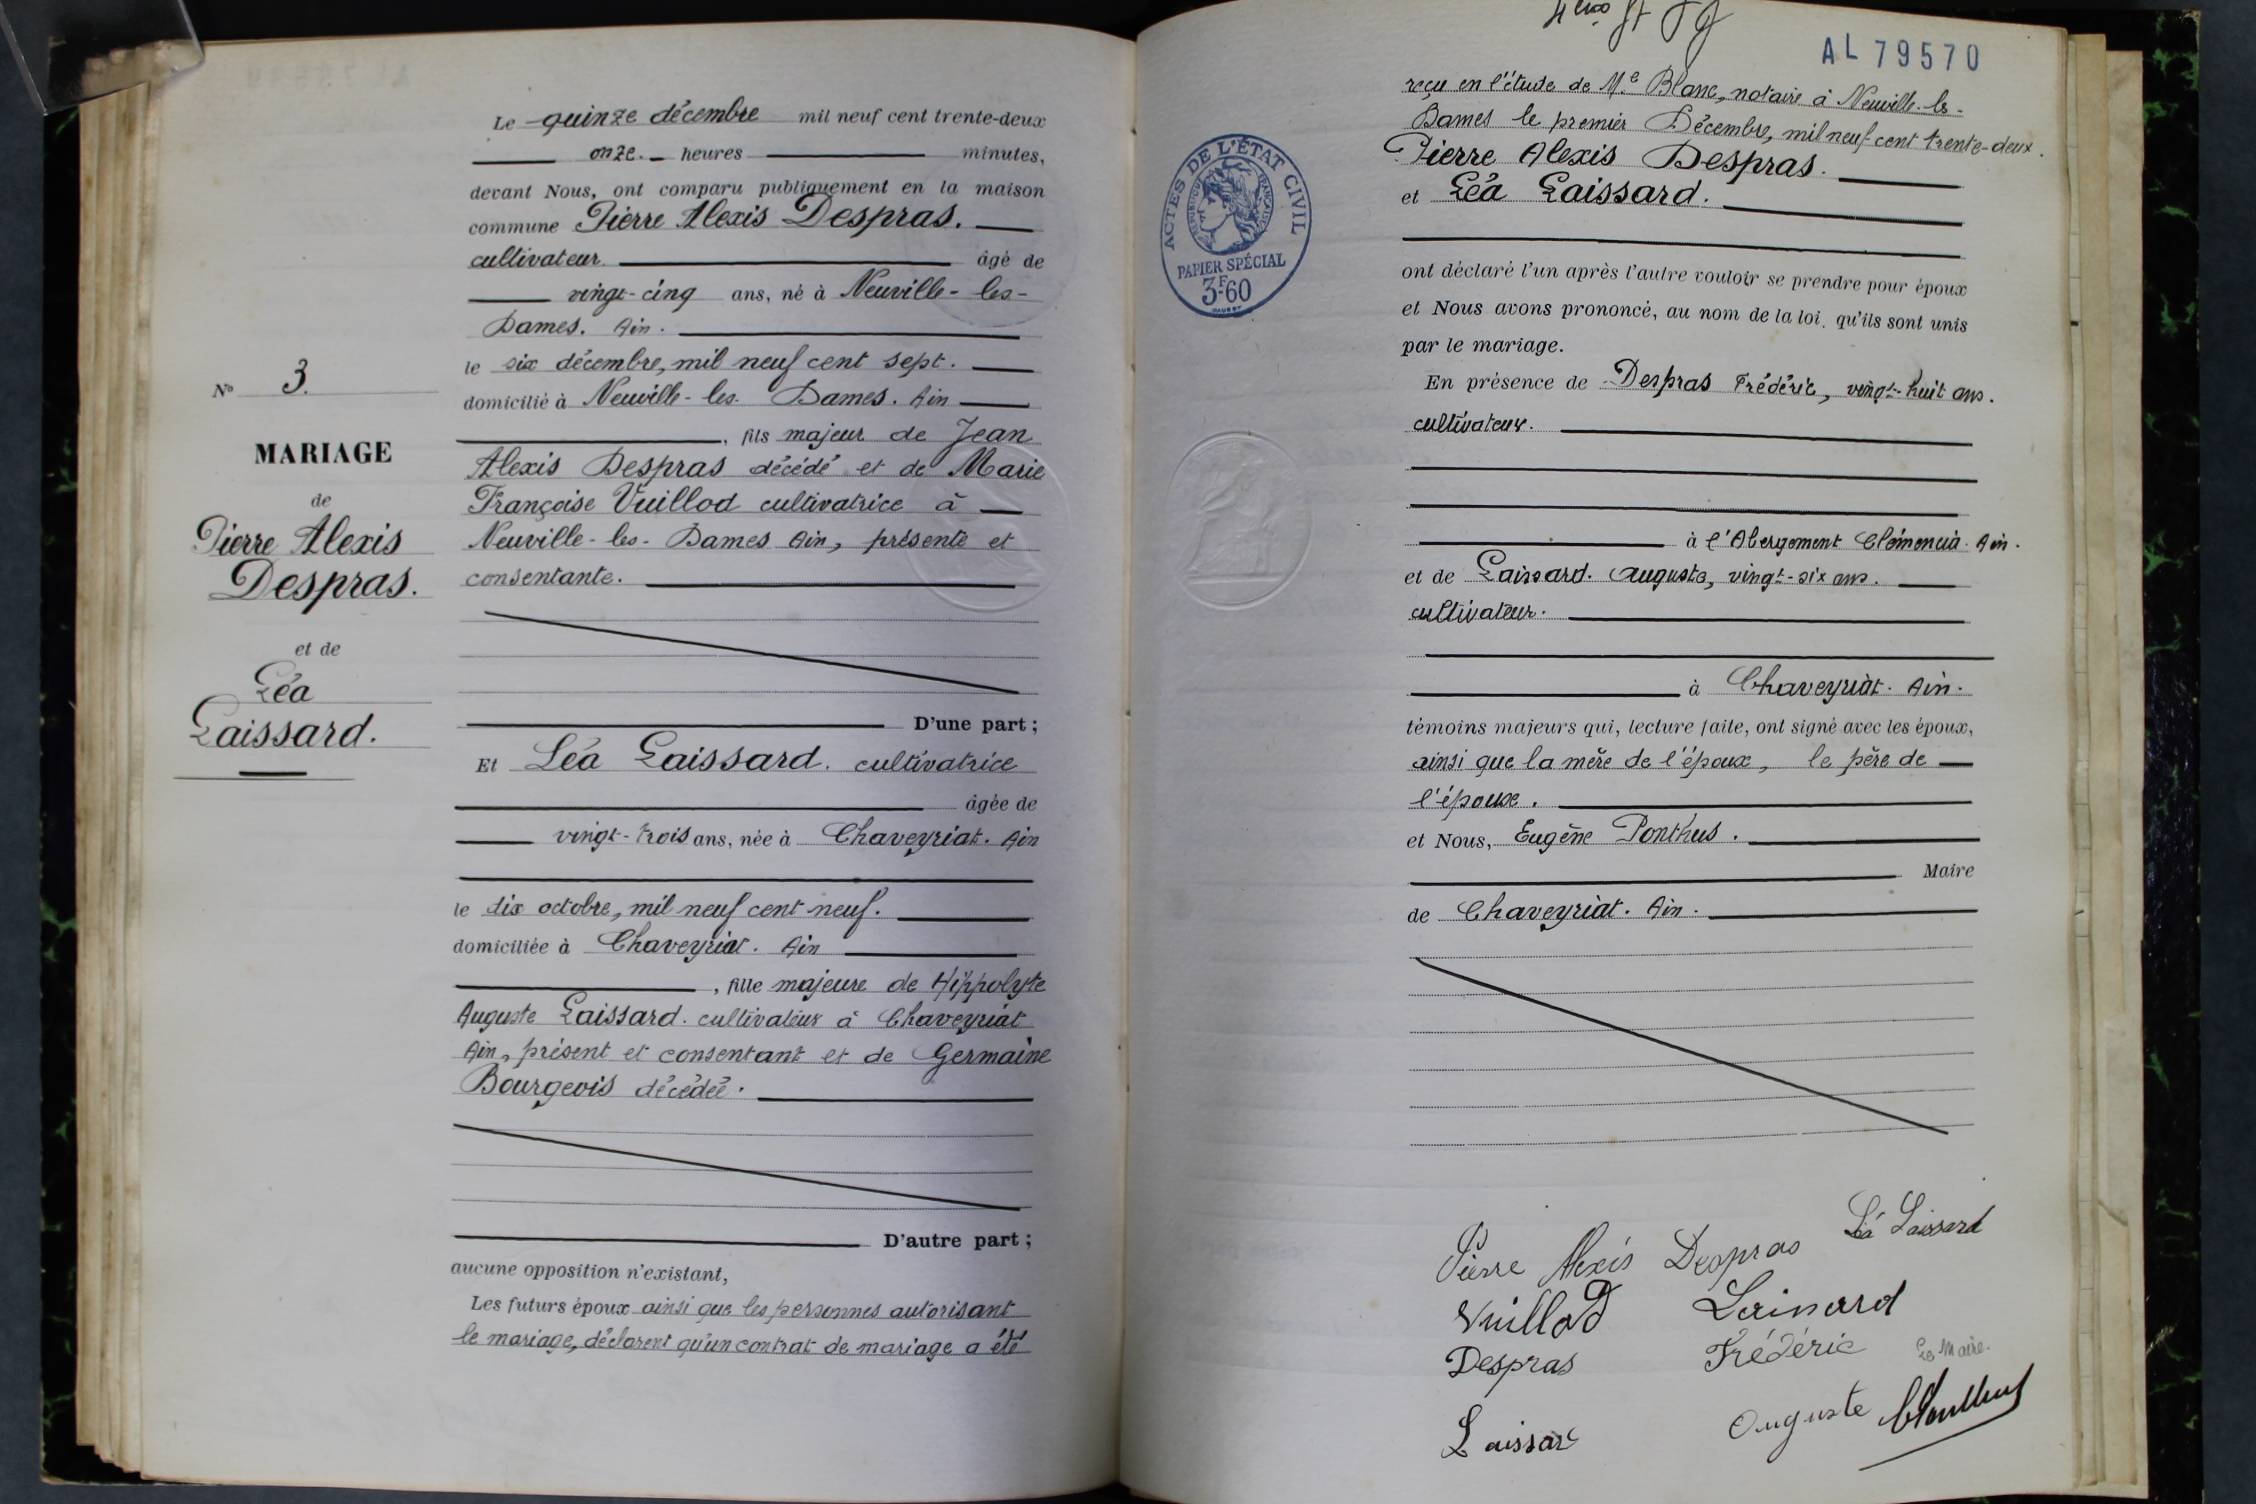 Le quinze décembre mil neuf cent trente-deux
onze heures minutes,
devant Nous, ont comparu publiquement en la maison
commune Pierre Alexis Despras.
cultivateur. âgé de
vingt-cinq ans, né à Neuville-les-
Dames. Ain.
le six décembre, mil neuf cent sept.
domicilié à Neuville-les-Dames. Ain
, fils majeur de Jean
Alexis Despras décédé et de Marie
Françoise Vuillod cultivatrice à
Neuville-les-Dames Ain, présente et
consentante.
D'une part ;
Et Léa Laissard. cultivatrice
âgée de
vingt-trois ans, née à Chaveyriat. Ain
le dix octobre, mil neuf cent neuf.
domiciliée à Chaveyriat. Ain
, fille majeure de Hippolyte
Auguste Laissard. cultivateur à Chaveyriat
Ain, présent et consentant et de Germaine
Bourgeois décédée.
D'autre part ;
aucune opposition n'existant,
Les futurs époux ainsi que les personnes autorisant
le mariage, déclarent qu'un contrat de mariage a été
N° 3.
MARIAGE
de
Pierre Alexis
Despras.
et de
Léa
Laissard.
AL 79570
reçu en l'étude de Me Blanc, notaire à Neuville-les-
Dames le premier Décembre, mil neuf cent trente-deux.
Pierre Alexis Despras.
et Léa Laissard.
ont déclaré l'un après l'autre vouloir se prendre pour époux
et Nous avons prononcé, au nom de la loi, qu'ils sont unis
par le mariage.
En présence de Despras Frédéric, vingt-huit ans.
cultivateur.
à l'Abergement Clémencia. Ain.
et de Laissard. Auguste, vingt-six ans.
cultivateur.
à Chaveyriat. Ain.
témoins majeurs qui, lecture faite, ont signé avec les époux,
ainsi que la mère de l'époux, le père de
l'épouse.
et Nous, Eugène Ponthus.
Maire
de Chaveyriat. Ain.
ACTES DE L'ÉTAT CIVIL
RÉPUBLIQUE FRANÇAISE
PAPIER SPÉCIAL
3F60
Pierre Alexis Despras Léa Laissard
Vuillod Laissard
Despras Frédéric Le Maire.
Laissard Auguste